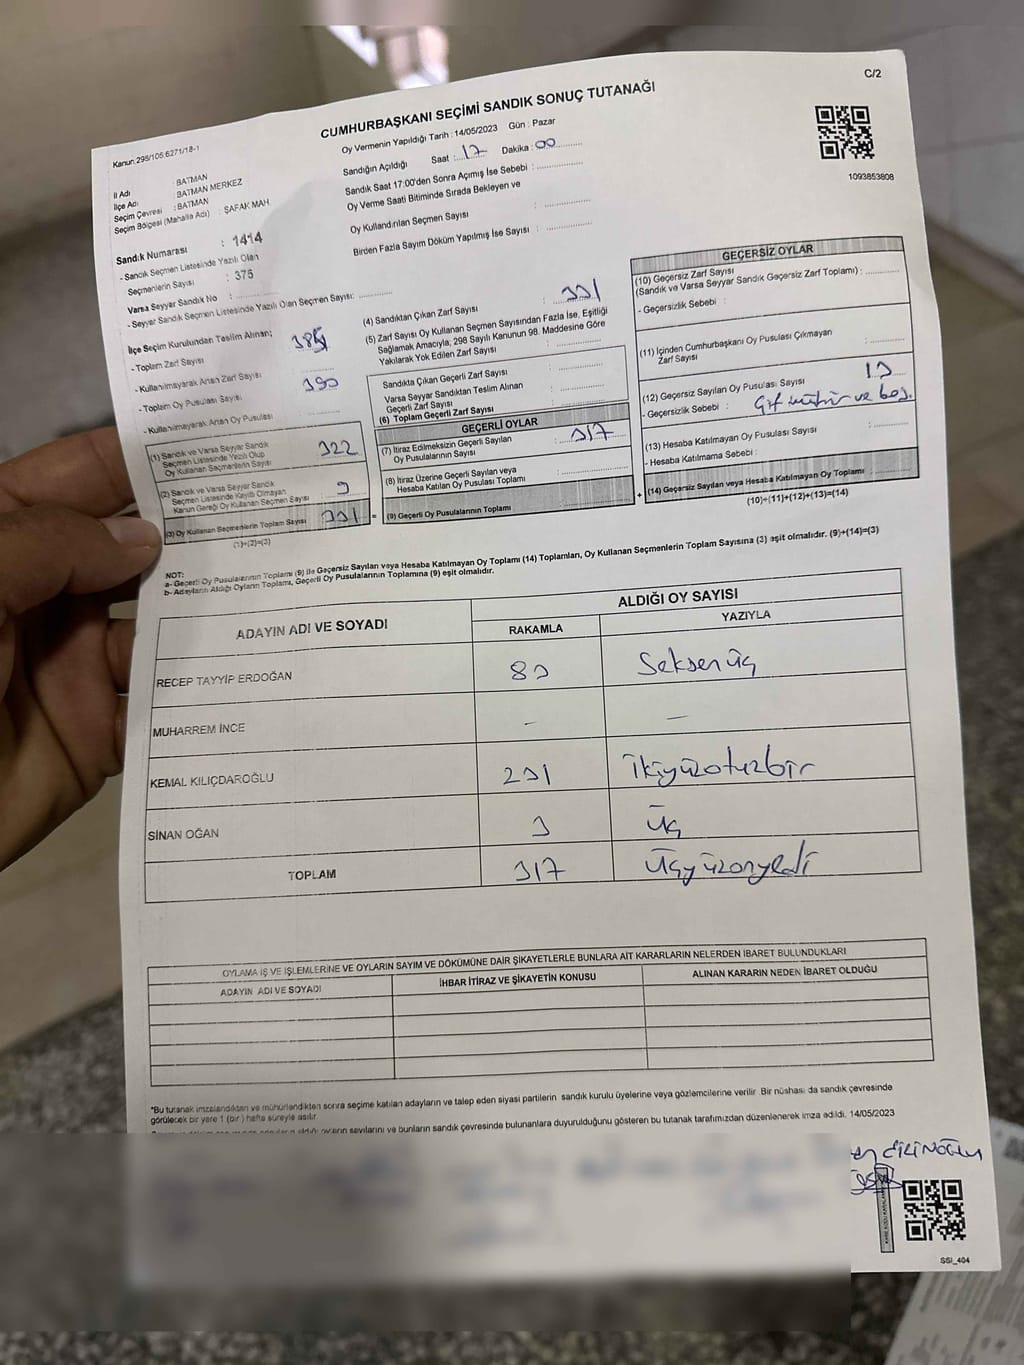 C/2
CUMHURBAŞKANI SEÇİMİ SANDIK SONUÇ TUTANAĞI
Kanun: 298/105:6271/18-1
Oy Vermenin Yapıldığı Tarih : 14/05/2023 Gün : Pazar
Sandığın Açıldığı Saat : 17 Dakika : 00
Sandık Saat 17:00'den Sonra Açmış İse Sebebi :
Oy Verme Saati Bitiminde Sırada Bekleyen ve
Oy Kullandırılan Seçmen Sayısı :
Birden Fazla Sayım Döküm Yapılmış İse Sayısı :
1093853808
İl Adı : BATMAN
İlçe Adı : BATMAN MERKEZ
Seçim Çevresi : BATMAN
Seçim Bölgesi (Mahalla Adı) : ŞAFAK MAH.
Sandık Numarası : 1414
- Sandık Seçmen Listesinde Yazılı Olan
Seçmenlerin Sayısı : 375
Varsa Seyyar Sandık No :
- Seyyar Sandık Seçmen Listesinde Yazılı Olan Seçmen Sayısı:
İlçe Seçim Kurulundan Teslim Alınan;
- Toplam Zarf Sayısı
- Kullanılmayarak Artan Zarf Sayısı
- Toplam Oy Pusulası Sayısı 390
- Kullanılmayarak Artan Oy Pusulası
(1) Sandık ve Varsa Seyyar Sandık
Seçmen Listesinde Yazılı Olup
Oy Kullanan Seçmenlerin Sayısı 322
(2) Sandık ve Varsa Seyyar Sandık
Seçmen Listesinde Kayıtlı Olmayan
Kanun Gereği Oy Kullanan Seçmen Sayısı 9
(3) Oy Kullanan Seçmenlerin Toplam Sayısı 331
(1)+(2)=(3)
(4) Sandıktan Çıkan Zarf Sayısı : 331
(5) Zarf Sayısı Oy Kullanan Seçmen Sayısından Fazla İse, Eşitliği
Sağlamak Amacıyla, 298 Sayılı Kanunun 98. Maddesine Göre
Yakılarak Yok Edilen Zarf Sayısı :
Sandıkta Çıkan Geçerli Zarf Sayısı :
Varsa Seyyar Sandıktan Teslim Alınan
Geçerli Zarf Sayısı :
(6) Toplam Geçerli Zarf Sayısı
=
GEÇERLİ OYLAR
(7) İtiraz Edilmeksizin Geçerli Sayılan
Oy Pusulalarının Sayısı : 317
(8) İtiraz Üzerine Geçerli Sayılan veya
Hesaba Katılan Oy Pusulası Toplamı
(9) Geçerli Oy Pusulalarının Toplamı
+
GEÇERSİZ OYLAR
(10) Geçersiz Zarf Sayısı
(Sandık ve Varsa Seyyar Sandık Geçersiz Zarf Toplamı) :
- Geçersizlik Sebebi :
(11) İçinden Cumhurbaşkanı Oy Pusulası Çıkmayan
Zarf Sayısı :
(12) Geçersiz Sayılan Oy Pusulası Sayısı : 13
- Geçersizlik Sebebi : Çift mühür ve boş.
(13) Hesaba Katılmayan Oy Pusulası Sayısı :
- Hesaba Katılmama Sebebi :
(14) Geçersiz Sayılan veya Hesaba Katılmayan Oy Toplamı
(10)+(11)+(12)+(13)=(14)
NOT:
a- Geçerli Oy Pusulalarının Toplamı (9) ile Geçersiz Sayılan veya Hesaba Katılmayan Oy Toplamı (14) Toplamları, Oy Kullanan Seçmenlerin Toplam Sayısına (3) eşit olmalıdır. (9)+(14)=(3)
b- Adayların Aldığı Oyların Toplamı, Geçerli Oy Pusulalarının Toplamına (9) eşit olmalıdır.
ADAYIN ADI VE SOYADI
ALDIĞI OY SAYISI
RAKAMLA YAZIYLA
RECEP TAYYİP ERDOĞAN 83 Seksenüç
MUHARREM İNCE - -
KEMAL KILIÇDAROĞLU 231 İkiyüzotuzbir
SİNAN OĞAN 3 üç
TOPLAM 317 Üçyüzonyedi
OYLAMA İŞ VE İŞLEMLERİNE VE OYLARIN SAYIM VE DÖKÜMÜNE DAİR ŞİKAYETLERLE BUNLARA AİT KARARLARIN NELERDEN İBARET BULUNDUKLARI
ADAYIN ADI VE SOYADI İHBAR İTİRAZ VE ŞİKAYETİN KONUSU ALINAN KARARIN NEDEN İBARET OLDUĞU
*Bu tutanak imzalandıktan ve mühürlendikten sonra seçime katılan adayların ve talep eden siyasi partilerin sandık kurulu üyelerine veya gözlemcilerine verilir. Bir nüshası da sandık çevresinde
görülecek bir yere 1 (bir) hafta süreyle asılır.
oyların sayılarını ve bunların sandık çevresinde bulunanlara duyurulduğunu gösteren bu tutanak tarafımızdan düzenlenerek imza edildi. 14/05/2023
SSİ_404